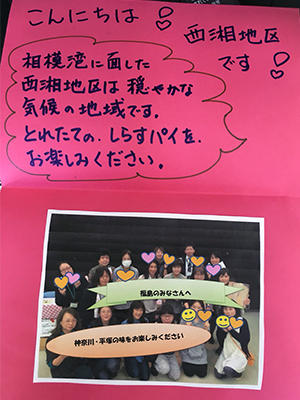 こんにちは!
西湘地区
です!
相模湾に面した
西湘地区は穏やかな
気候の地域です。
とれたての、しらすパイを、
お楽しみください。
福島のみなさんへ
神奈川・平塚の味をお楽しみください